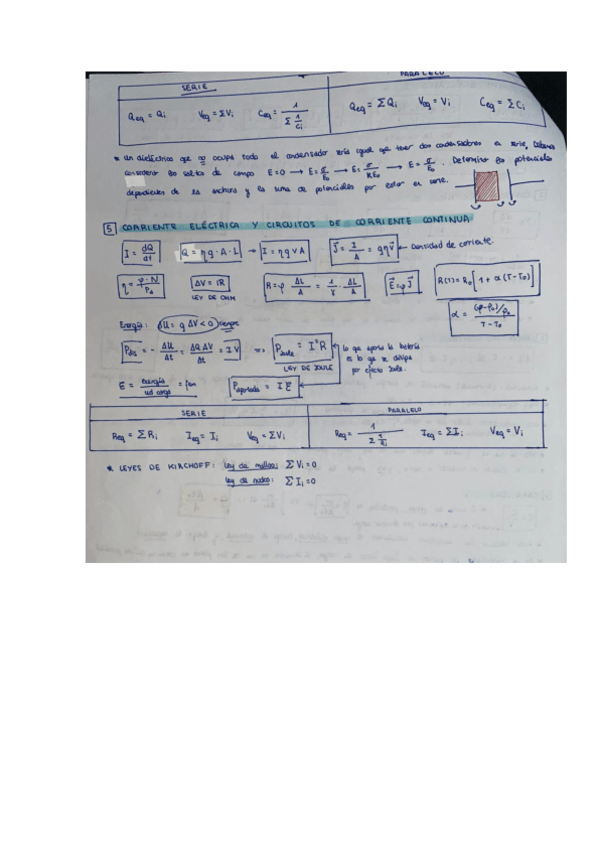 SERIE PARALELO
Qeq = Qi Veq = ΣVi Ceq = 1 / Σ 1/Ci Qeq = ΣQi Veq = Vi Ceq = ΣCi
* Un dieléctrico que no ocupa todo el condensador sería igual que tener dos condensadores en serie,
considerar los saltos de campo E=0 → E=σ/ε0 → E=σ/Kε0 → E=σ/ε0. Determinar los potenciales
dependientes de la anchura y la suma de potenciales por estar en serie.
5 CORRIENTE ELÉCTRICA Y CIRCUITOS DE CORRIENTE CONTINUA
I = dQ/dt Q = ηq·A·L → I = ηqvA J⃗ = I/A = qηv⃗ ← Densidad de corriente.
ΔV = IR R = ρ ΔL/A = 1/γ · ΔL/A E⃗ = ρJ⃗ R(T) = R0[1 + α(T-T0)]
LEY DE OHM
α = (ρ-ρ0)/ρ0 / T-T0
Energía: ΔU = qΔV < 0 siempre
Pdis = - ΔU/Δt = ΔQΔV/Δt = I·V ⇒ PJoule = I²R
LEY DE JOULE
lo que aporta la batería
es lo que se disipa
por efecto Joule.
E = energía / ud carga = fem Paportada = I ξ
SERIE PARALELO
Req = ΣRi Ieq = Ii Veq = ΣVi Req = 1 / Σ 1/Ri Ieq = ΣIi Veq = Vi
* LEYES DE KIRCHOFF: Ley de mallas: ΣVi=0
Ley de nudos: ΣIi=0